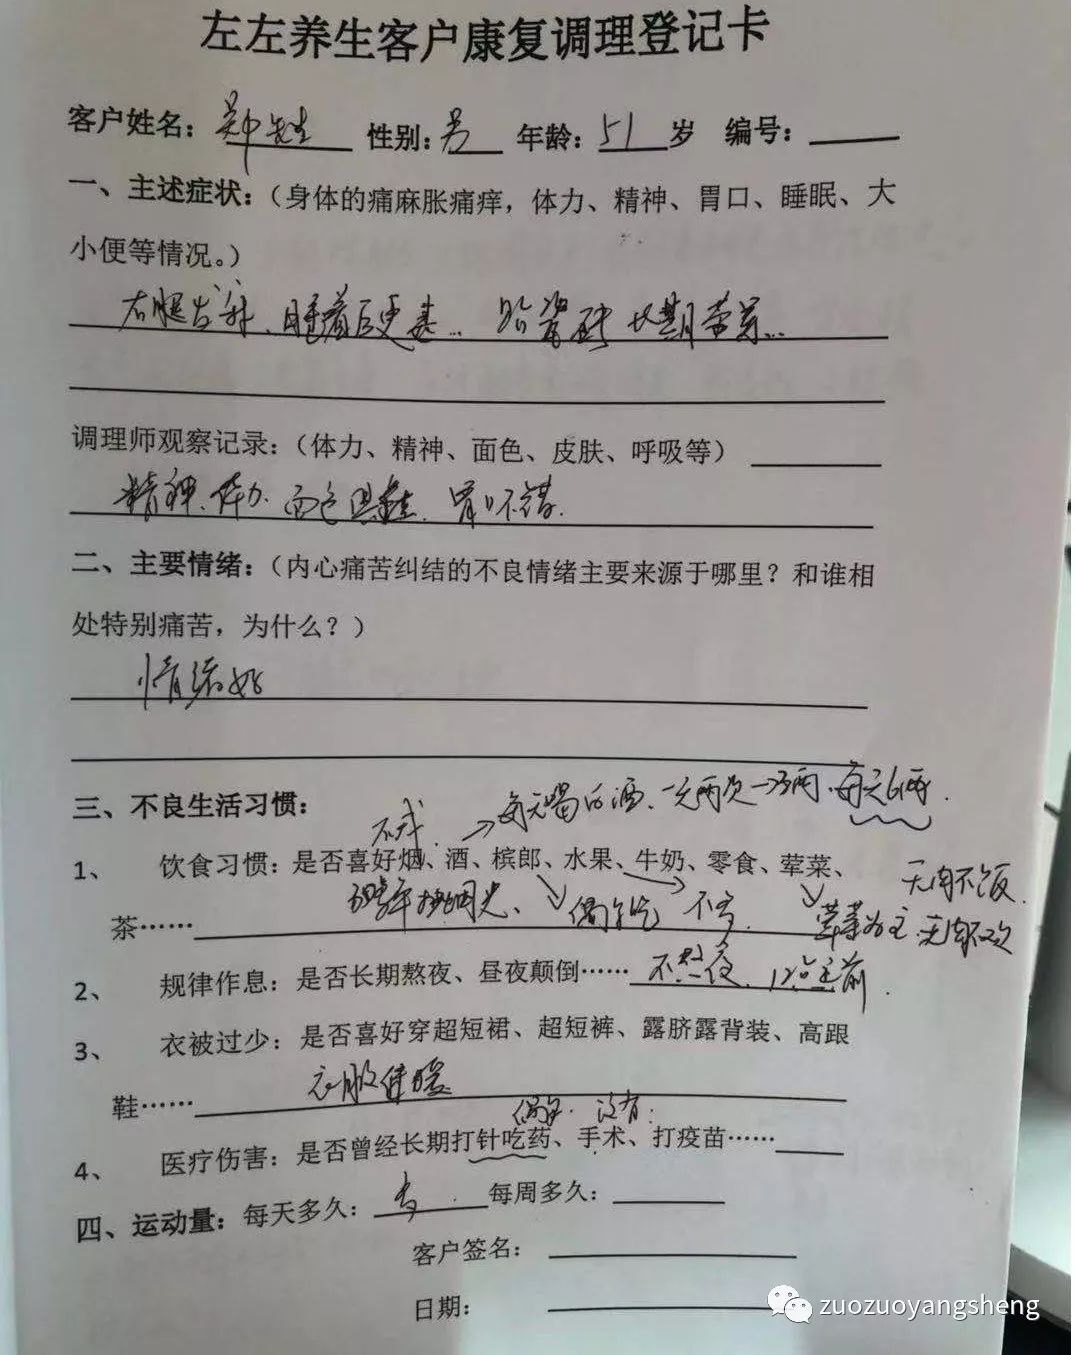 左左养生客户康复调理登记卡
客户姓名：郑先生 性别：男 年龄：51岁 编号：
一、主述症状：（身体的痛麻胀痛痒，体力、精神、胃口、睡眠、大
小便等情况。）
右腿发麻、睡着后更甚… 贴瓷砖 长期劳累…
调理师观察记录：（体力、精神、面色、皮肤、呼吸等）
精神、体力、面色俱佳、胃口不错.
二、主要情绪：（内心痛苦纠结的不良情绪主要来源于哪里？和谁相
处特别痛苦，为什么？）
情绪好
每天喝白酒、一天两次一次3两、每天6两.
三、不良生活习惯：
不戒.
1、 饮食习惯：是否喜好烟、酒、槟郎、水果、牛奶、零食、荤菜、
无肉不饭.
茶…… 偶尔吃 不多. 荤菜为主.无肉不欢
2、 规律作息：是否长期熬夜、昼夜颠倒…… 不熬夜、12点之前.
3、 衣被过少：是否喜好穿超短裙、超短裤、露脐露背装、高跟
鞋…… 衣服保暖
偶尔. 没有.
4、 医疗伤害：是否曾经长期打针吃药、手术、打疫苗……
四、运动量：每天多久： 每周多久：
客户签名：
日期：
zuozuoyangsheng